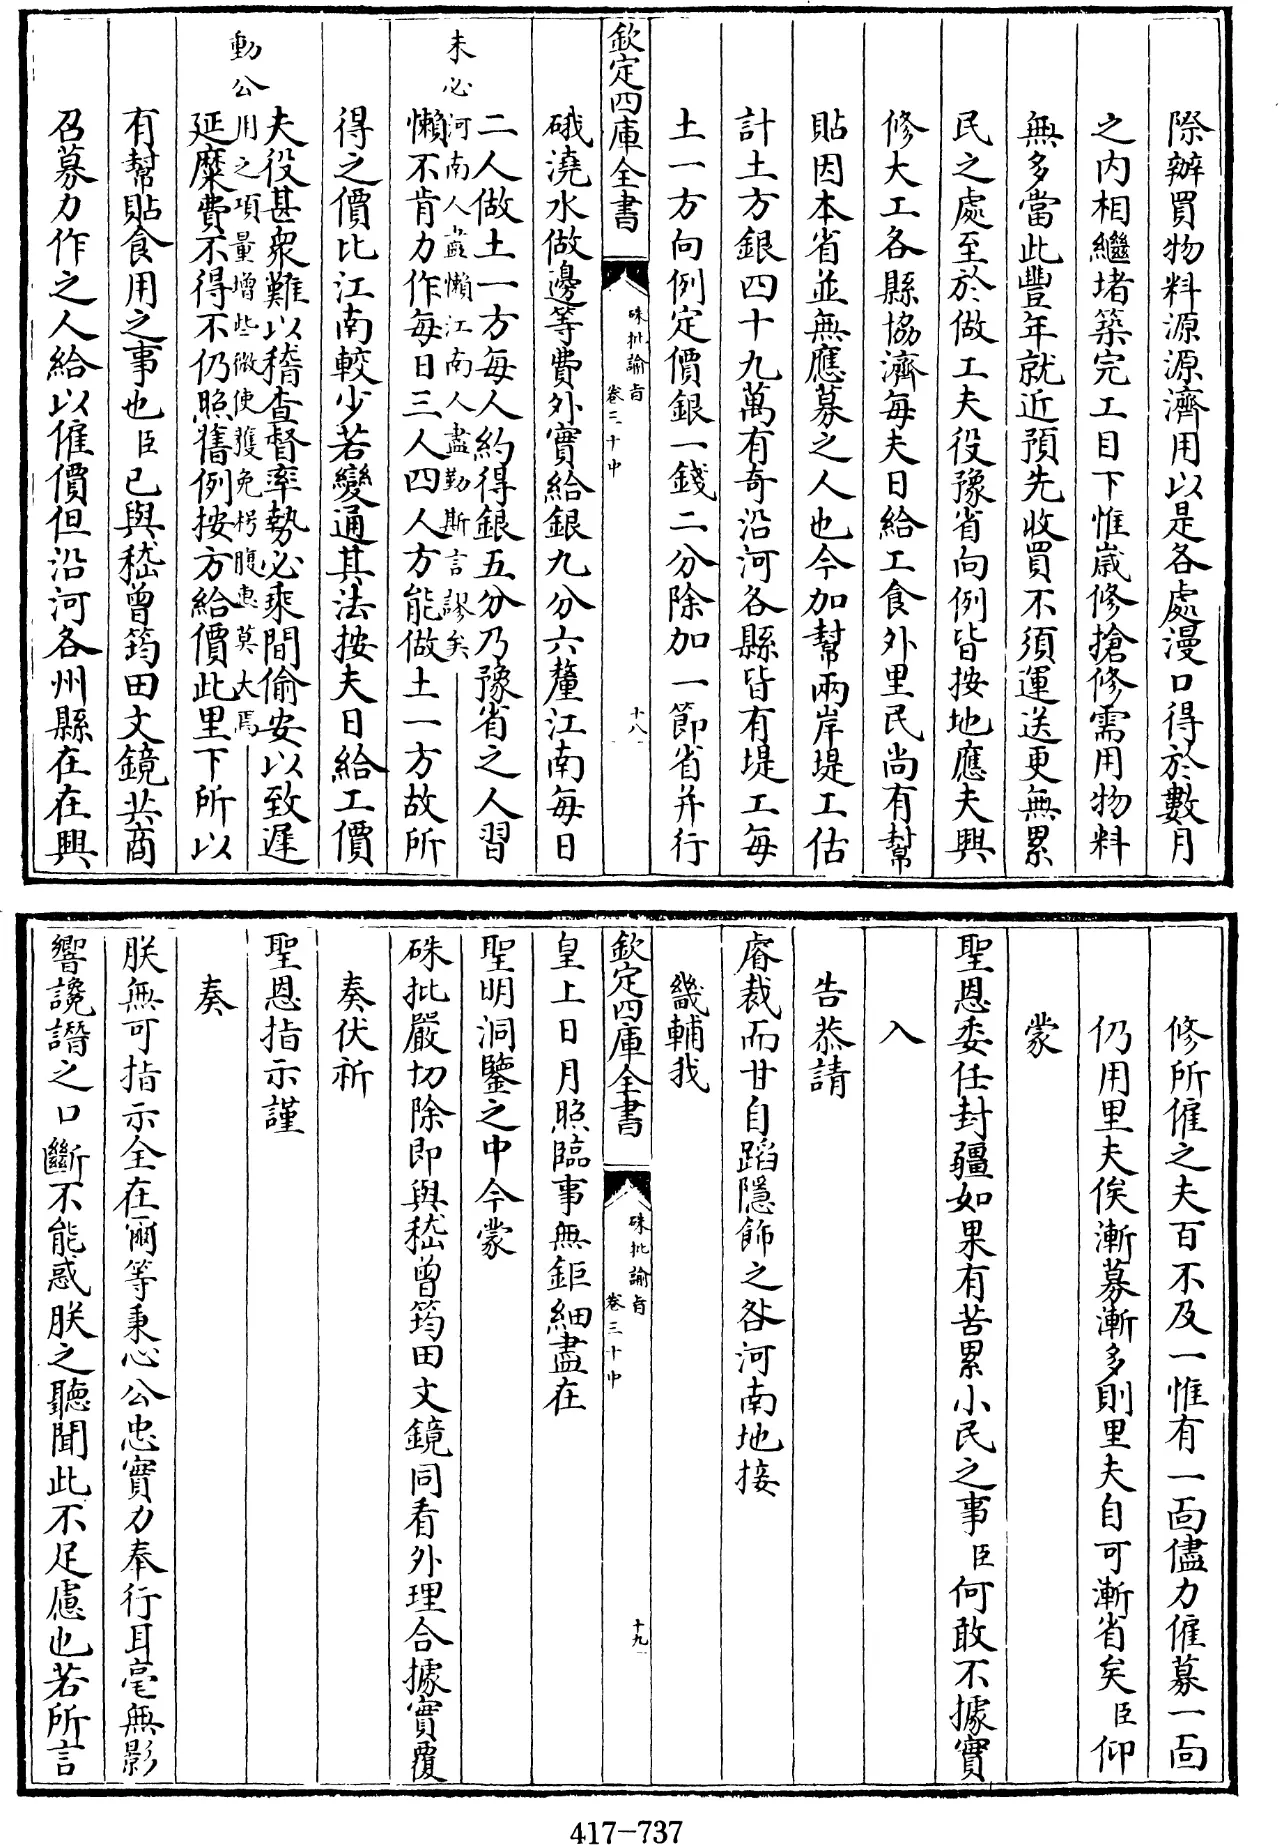 際辦買物料源源濟用以是各處漫口得於數月
之内相繼堵築完工目下惟歲修搶修需用物料
無多當此豐年就近預先收買不須運送更無累
民之處至於做工夫役豫省向例皆按地應夫興
修大工各縣協濟每夫日給工食外里民尚有幫
貼因本省並無應募之人也今加幫兩岸堤工估
計土方銀四十九萬有奇沿河各縣皆有堤工每
土一方向例定價銀一錢二分除加一節省并行
欽定四庫全書
硃批諭旨
卷三十中
十八
硪澆水做邊等費外實給銀九分六釐江南每日
二人做土一方每人約得銀五分乃豫省之人習
未必河南人盡懶江南人盡勤斯言謬矣
懶不肯力作每日三人四人方能做土一方故所
得之價比江南較少若變通其法按夫日給工價
夫役甚衆難以稽查督率勢必乘間偷安以致遲
動公用之項量增些微使獲免枵腹惠莫大焉
延糜費不得不仍照舊例按方給價此里下所以
有幫貼食用之事也臣已與嵇曾筠田文鏡共商
召募力作之人給以僱價但沿河各州縣在在興
修所僱之夫百不及一惟有一面儘力僱募一面
仍用里夫俟漸募漸多則里夫自可漸省矣臣仰
蒙
聖恩委任封疆如果有苦累小民之事臣何敢不據實
入
告恭請
睿裁而甘自蹈隱飾之咎河南地接
畿輔我
欽定四庫全書
硃批諭旨
卷三十中
十九
皇上日月照臨事無鉅細盡在
聖明洞鑒之中今蒙
硃批嚴切除即與嵇曾筠田文鏡同看外理合據實覆
奏伏祈
聖恩指示謹
奏
朕無可指示全在爾等秉心公忠實力奉行耳毫無影
響讒譖之口斷不能惑朕之聽聞此不足慮也若所言
417-737